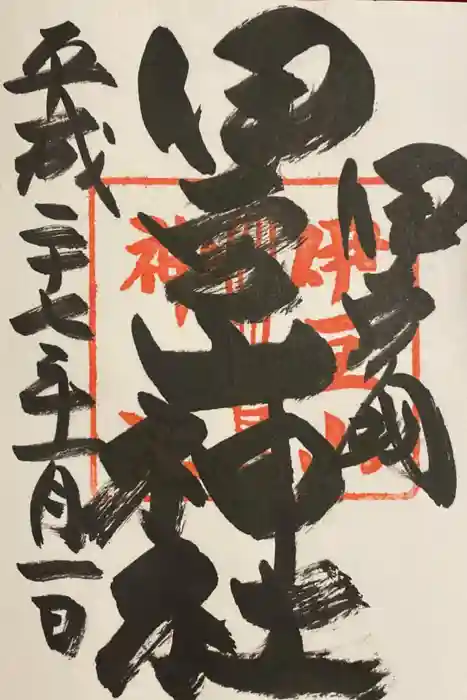 伊豆国
伊豆山神社
平成二十七年一月一日
伊豆山
神